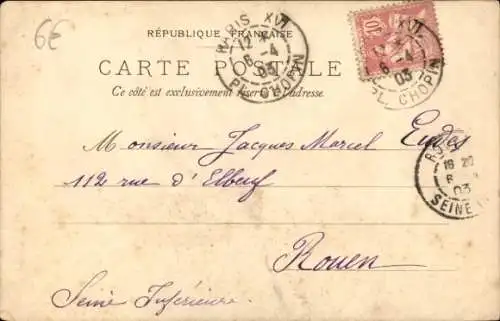 6€
RÉPUBLIQUE FRANÇAISE
CARTE POSTALE
Ce côté est exclusivement réservé à l'adresse.
PARIS XVI
12
6 -4
03
PL. CHOPIN
10
XVI
6 -4
03
PL. CHOPIN
Monsieur Jacques Marcel Eudes
112 rue d'Elbeuf
18 20
6
03
SEINE
Rouen
Seine Inférieure.